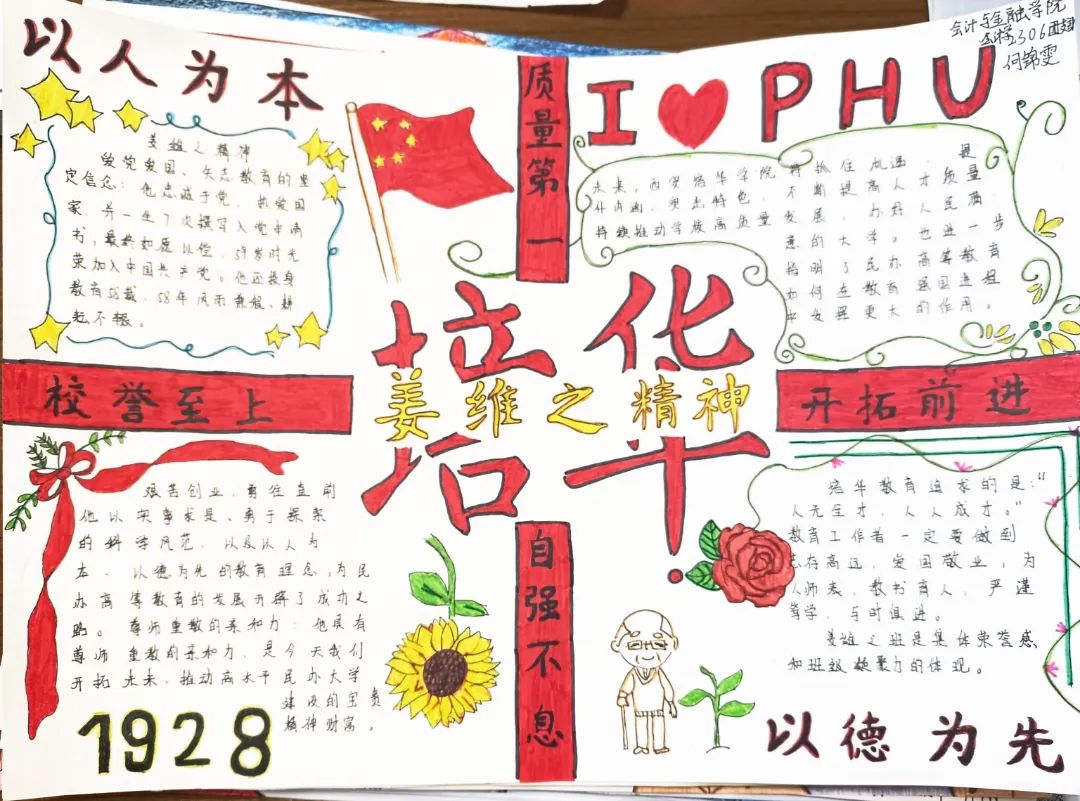 会计与金融学院
会计学2306团支部
何锦雯
以人为本
I PHU
质量第一
姜维之精神
爱党爱国、矢志教育的坚
定信念：他忠诚于党，热爱国
家，并一生7次撰写入党申请
书，最终如愿以偿，59岁时光
荣加入中国共产党。他还投身
教育58载，58年风雨兼程、耕
耘不辍。
未来，西安培华学院将抓住机遇，是
升内涵，突出特色，不断提高人才质量
持续推动学校高质量发展，办好人民满
意的大学。也进一步
指明了民办高等教育
如何在教育强国进程
中发挥更大的作用。
校誉至上
培华
姜维之精神
开拓前进
艰苦创业，勇往直前
他以实事求是、勇于探索
的科学风范，以及以人为
本、以德为先的教育理念，为民
办高等教育的发展开辟了成功之
路。尊师重教的亲和力：他具有
尊师重教的亲和力，是今天我们
开拓未来，推动高水平民办大学
建设的宝贵
精神财富。
1928
自强不息
培华教育追求的是：“
人无全才，人人成才。”
教育工作者一定要做到
志存高远，爱国敬业，为
人师表，教书育人，严谨
笃学，与时俱进。
姜维之班是集体荣誉感
和班级凝聚力的体现。
以德为先